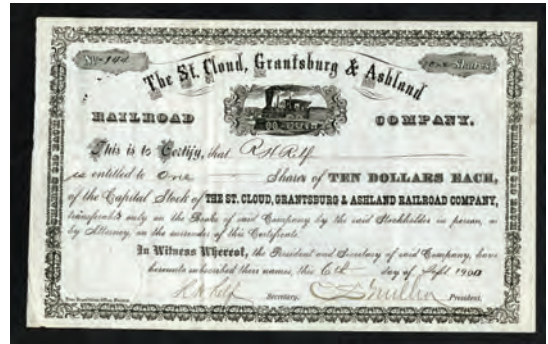 No. 144
one Shares
The St. Cloud, Grantsburg & Ashland
RAILROAD COMPANY.
This is to Certify, that R H Relf
is entitled to One Shares of TEN DOLLARS EACH,
of the Capital Stock of THE ST. CLOUD, GRANTSBURG & ASHLAND RAILROAD COMPANY,
transferable only on the Books of said Company by the said Stockholder in person, or
by Attorney, on the surrender of this Certificate.
In Witness Whereof, the President and Secretary of said Company, have
hereunto subscribed their names, this 6th day of Sept. 1900
R H Relf Secretary. President.